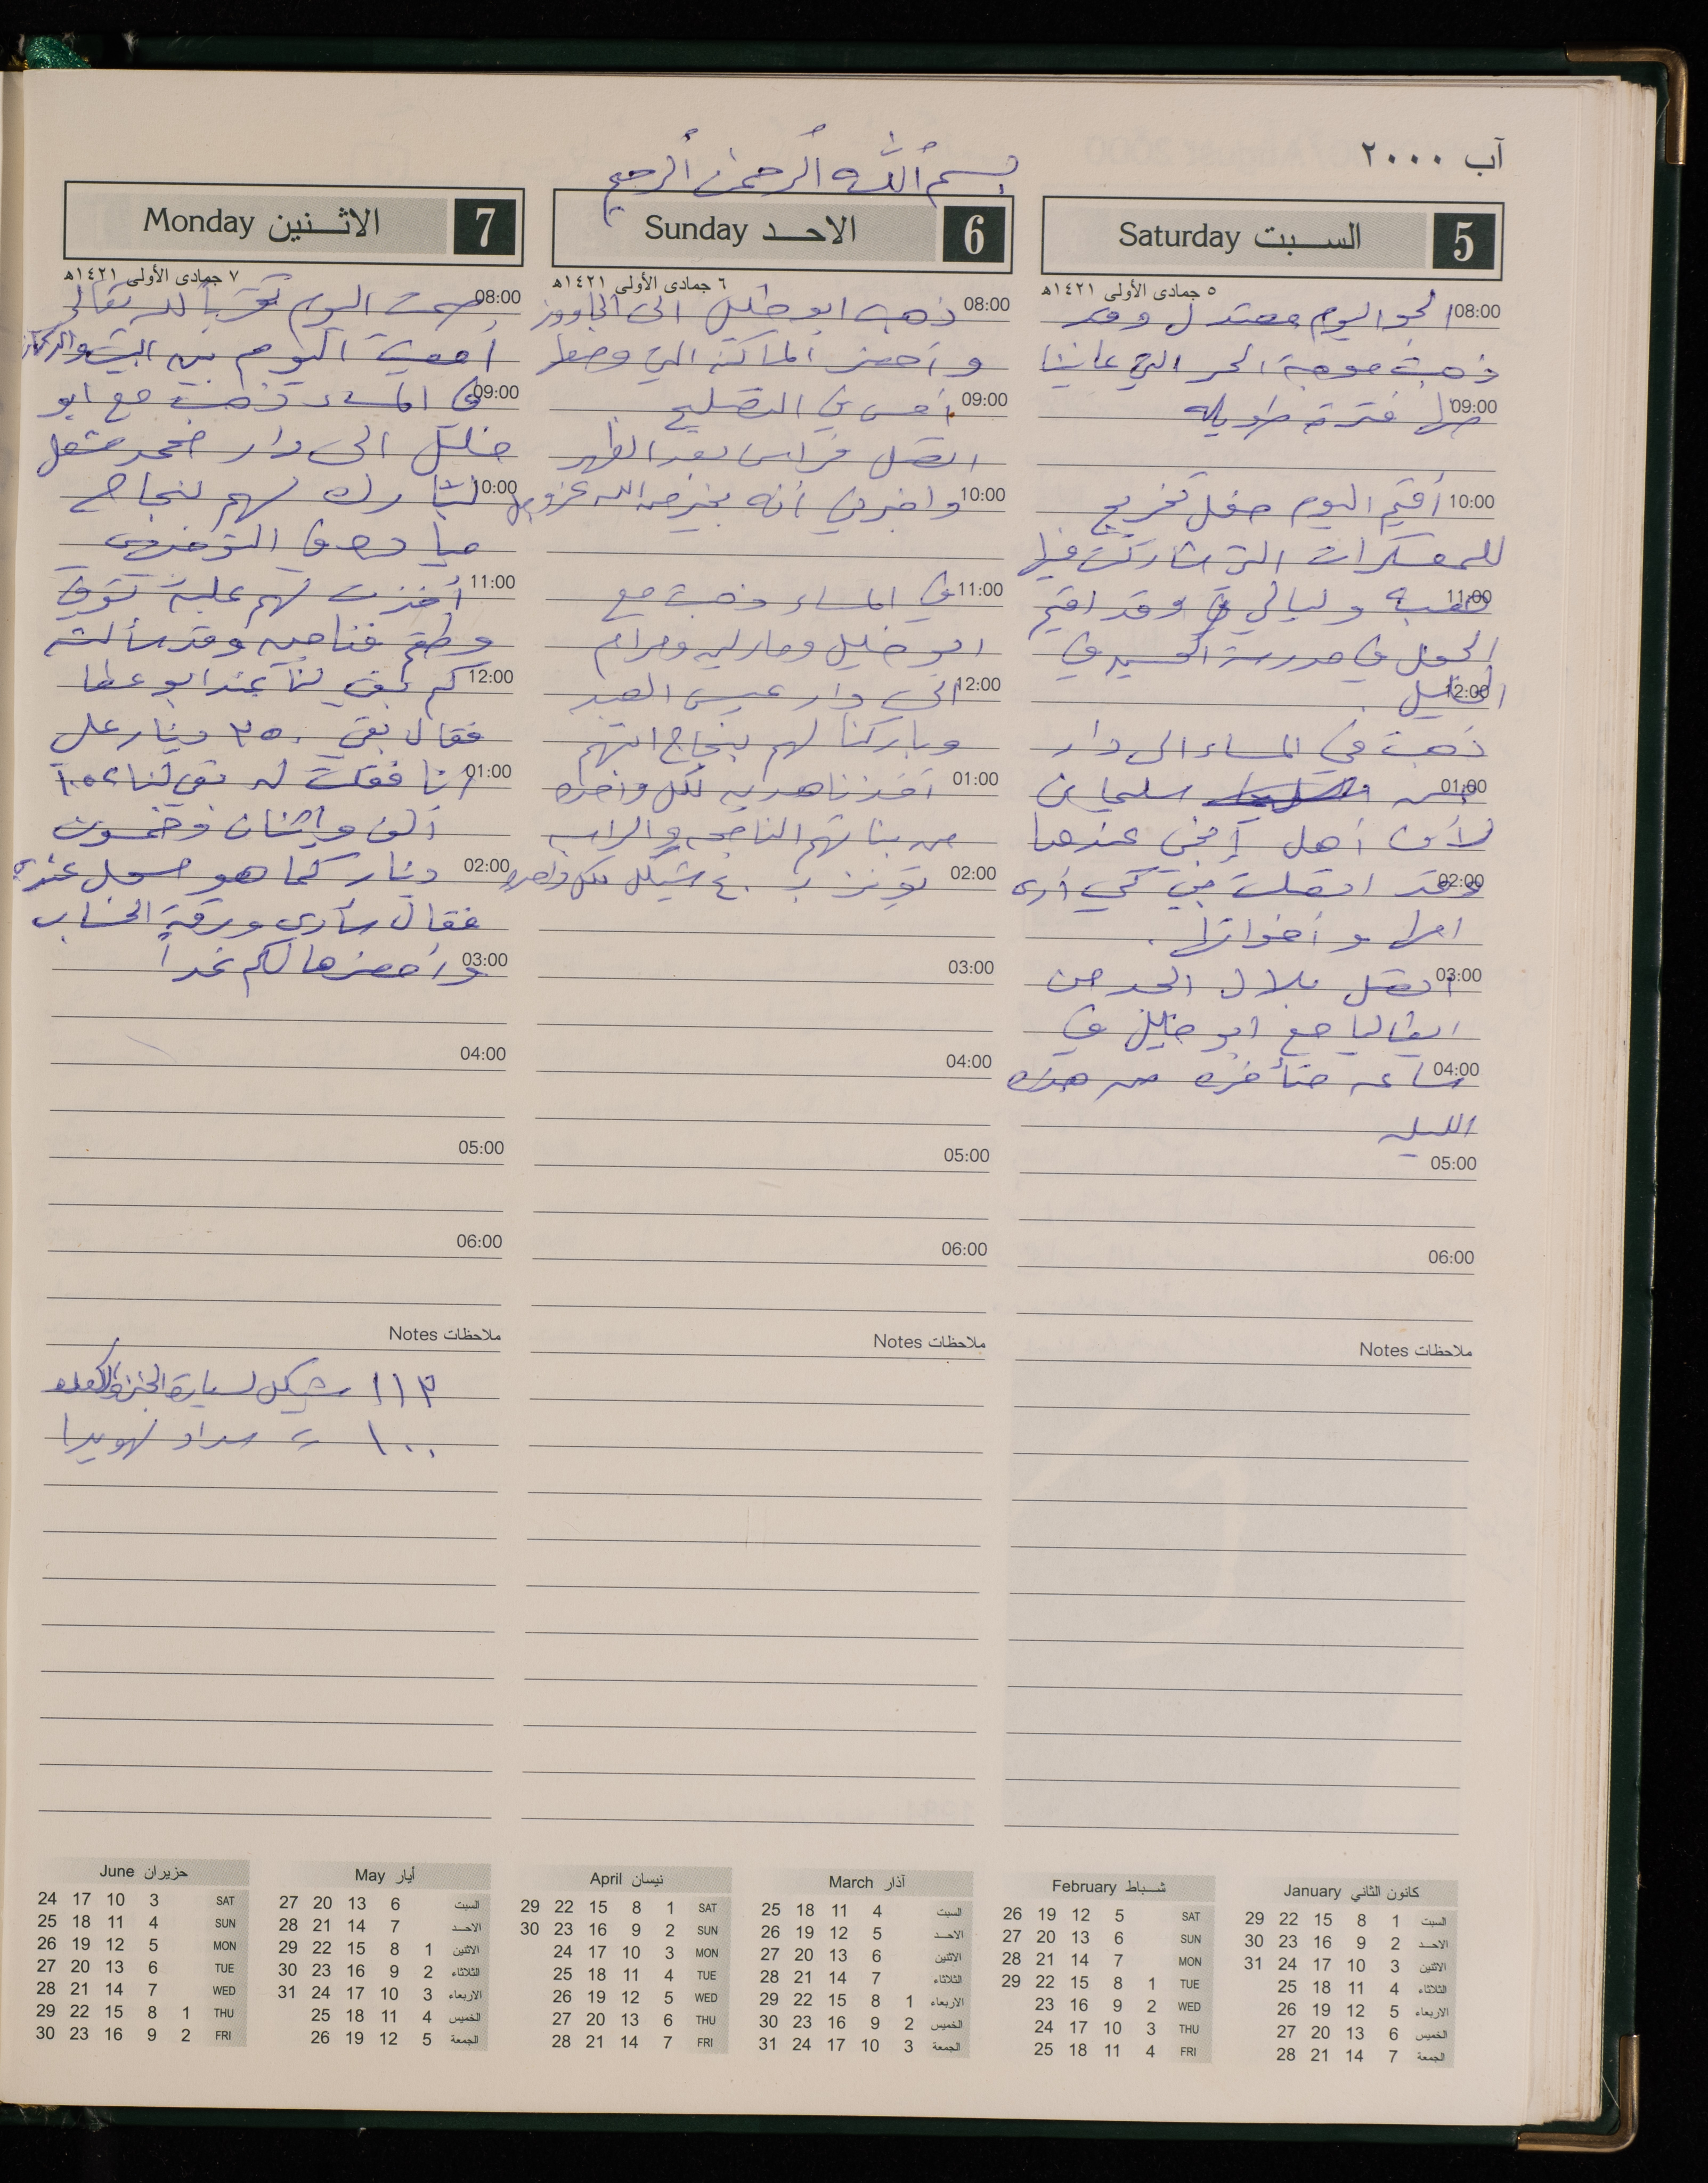 آب ٢٠٠٠
بسم الله الرحمن الرحيم
5 السبت Saturday
٥ جمادى الأولى ١٤٢١هـ
08:00 الجو اليوم معتدل وقد
ذهبت موجة الحر التي عانينا
09:00 منها فترة طويله
10:00 أقيم اليوم حفل تخريج
للمعسكرات التي شاركت فيها
11:00 هبه وليالي وقد اقيم
الحفل في مدرسة الحسين في
12:00 الخليل.
ذهبت في المساء الى دار
01:00 سليمان
لأن أهل إبني عندها
02:00 وقد اتصلت بي كي أرى
امها وأخواتها.
03:00 اتصل بلال الحد من
ايطاليا مع ابو خليل في
04:00 ساعه متأخره من هذه
الليله
05:00
06:00
ملاحظات Notes
6 الاحد Sunday
٦ جمادى الأولى ١٤٢١هـ
08:00 ذهب ابو خليل الى
وأحضر الماكنه التي وضعها
09:00 أمس في التصليح
اتصل فراس بعد الظهر
10:00 واخبرني أنه بخير من الله عز وجل
11:00 في المساء ذهبت مع
ابو خليل ومارلين ومرام
12:00 الى دار عيسى العبد
وباركنا لهم بنجاح ابنتهم
01:00 أخذنا هديه لكل واحده
من بناتهم الناجحه والراسبه
02:00 بـ ٤٠ شيكل لكل واحده
03:00
04:00
05:00
06:00
ملاحظات Notes
7 الاثنين Monday
٧ جمادى الأولى ١٤٢١هـ
08:00 صمت اليوم تقرباً لله تعالى
أمضيت اليوم بين البيت والدكان
09:00 في المساء ذهبت مع ابو
خليل الى دار محمد مشعل
10:00 لنبارك لهم بنجاح
ميادة في التوجيهي
11:00 أخذت لهم علبة توفي
وطقم فناجين وقد سألت
12:00 كم بقي لنا عند ابو عطا
فقال بقي ٣٥٠ دينار علي
01:00 انا فقلت له بقي لنا ١٠٥٢
ألف واثنان وخمسون
02:00 دينار كما هو مسجل عندي
فقال سأرى ورقة الحساب
03:00 وأحضرها لكم غداً
04:00
05:00
06:00
ملاحظات Notes
١١٣ شيكل لسيارة الخبز والكعك
١٠٠ = سداد لهويدا
June حزيران
24 17 10 3 SAT
25 18 11 4 SUN
26 19 12 5 MON
27 20 13 6 TUE
28 21 14 7 WED
29 22 15 8 1 THU
30 23 16 9 2 FRI
May أيار
27 20 13 6 السبت
28 21 14 7 الاحد
29 22 15 8 1 الاثنين
30 23 16 9 2 الثلاثاء
31 24 17 10 3 الاربعاء
25 18 11 4 الخميس
26 19 12 5 الجمعة
April نيسان
29 22 15 8 1 SAT
30 23 16 9 2 SUN
24 17 10 3 MON
25 18 11 4 TUE
26 19 12 5 WED
27 20 13 6 THU
28 21 14 7 FRI
March آذار
25 18 11 4 السبت
26 19 12 5 الاحد
27 20 13 6 الاثنين
28 21 14 7 الثلاثاء
29 22 15 8 1 الاربعاء
30 23 16 9 2 الخميس
31 24 17 10 3 الجمعة
February شباط
26 19 12 5 SAT
27 20 13 6 SUN
28 21 14 7 MON
29 22 15 8 1 TUE
23 16 9 2 WED
24 17 10 3 THU
25 18 11 4 FRI
January كانون الثاني
29 22 15 8 1 السبت
30 23 16 9 2 الاحد
31 24 17 10 3 الاثنين
25 18 11 4 الثلاثاء
26 19 12 5 الاربعاء
27 20 13 6 الخميس
28 21 14 7 الجمعة